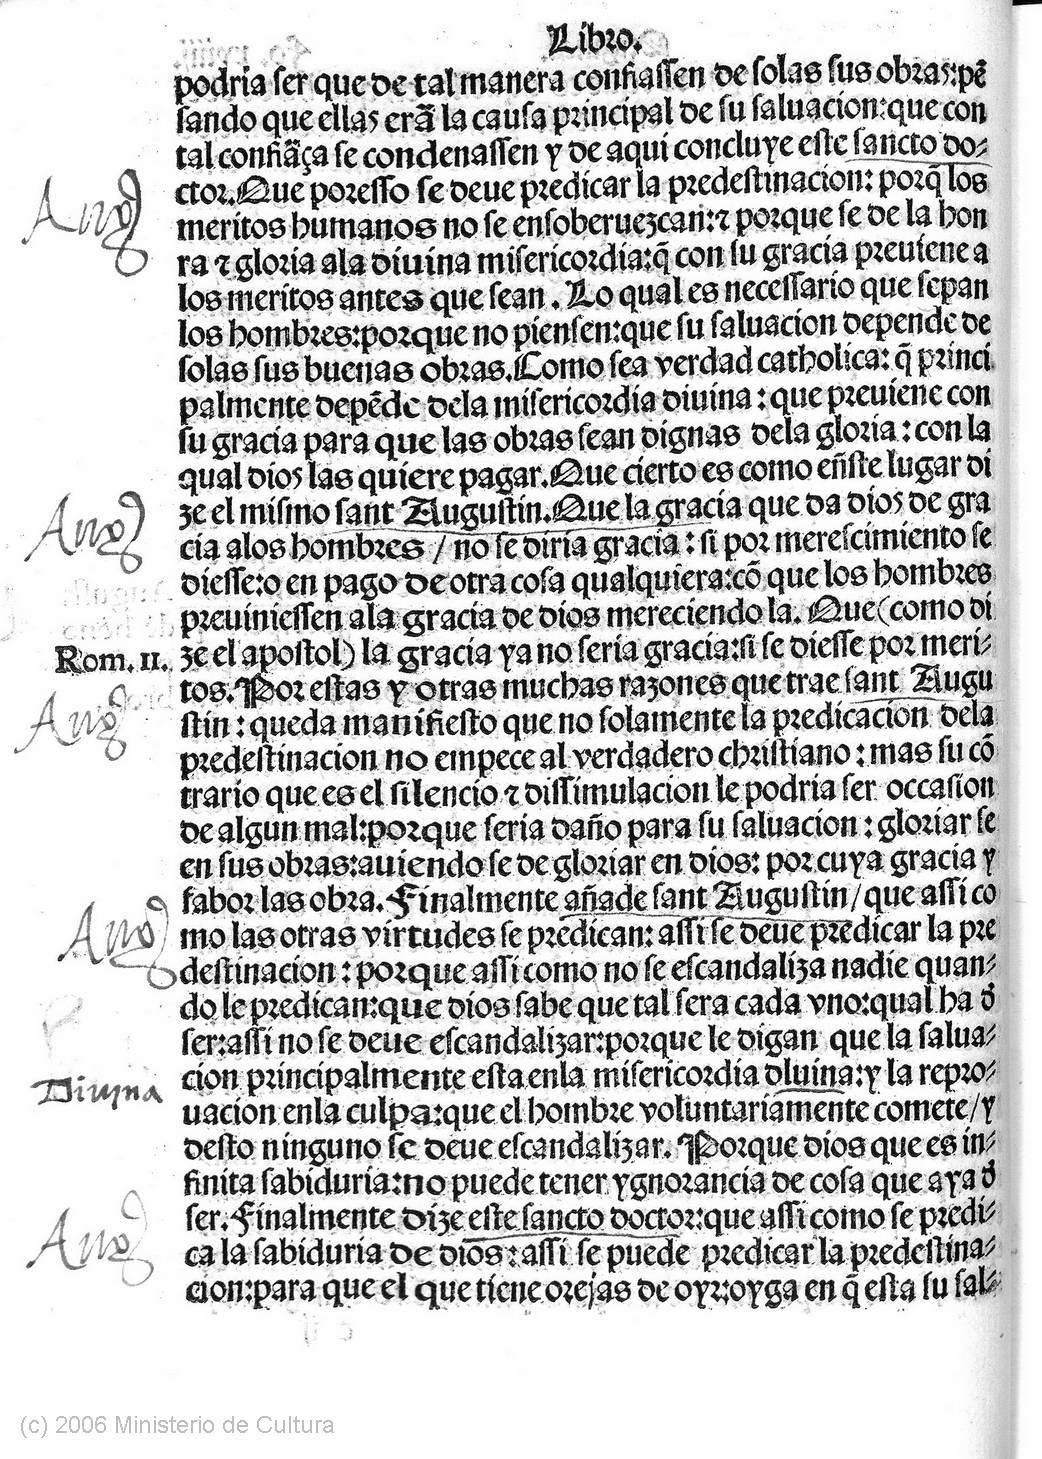 Libro.
podria ser que de tal manera confiassen de solas sus obras:pẽ
sando que ellas erã la causa principal de su saluacion:que con
tal confiãça se condenassen y de aqui concluye este sancto do-
ctor.Que poresso se deue predicar la predestinacion: porq̃ los
meritos humanos no se ensoberuezcan:⁊ porque se de la hon
ra ⁊ gloria ala diuina misericordia:q̃ con su gracia preuiene a
los meritos antes que sean. Lo qual es necessario que sepan
los hombres:porque no piensen:que su saluacion depende de
solas sus buenas obras.Como sea verdad catholica: q̃ princi
palmente depẽde dela misericordia diuina: que preuiene con
su gracia para que las obras sean dignas dela gloria: con la
qual dios las quiere pagar.Que cierto es como eñste lugar di
ze el mismo sant Augustin.Que la gracia que da dios de gra
cia alos hombres / no se diria gracia: si por merescimiento se
diesse:o en pago de otra cosa qualquiera:cõ que los hombres
preuiniessen ala gracia de dios mereciendo la. Que (como di
Rom.11. ze el apostol) la gracia ya no seria gracia:si se diesse por meri-
tos.Por estas y otras muchas razones que trae sant Augu
stin: queda manifiesto que no solamente la predicacion dela
predestinacion no empece al verdadero christiano: mas su cõ
trario que es el silencio ⁊ dissimulacion le podria ser occasion
de algun mal:porque seria daño para su saluacion: gloriar se
en sus obras:auiendo se de gloriar en dios: por cuya gracia y
fabor las obra. Finalmente añade sant Augustin/ que assi co
mo las otras virtudes se predican: assi se deue predicar la pre
destinacion: porque assi como no se escandaliza nadie quan-
do le predican:que dios sabe que tal sera cada vno:qual ha đ
ser:assi no se deue escandalizar:porque le digan que la salua-
Divina
cion principalmente esta enla misericordia dluina:y la repro-
uacion enla culpa:que el hombre voluntariamente comete/ y
desto ninguno se deue escandalizar. Porque dios que es in-
finita sabiduria:no puede tener ygnorancia de cosa que aya đ
ser.Finalmente dize este sancto doctor:que assi como se predi-
ca la sabiduria de dios: assi se puede predicar la predestina-
cion:para que el que tiene orejas de oyr:oyga en q̃ esta su sal-
(c) 2006 Ministerio de Cultura